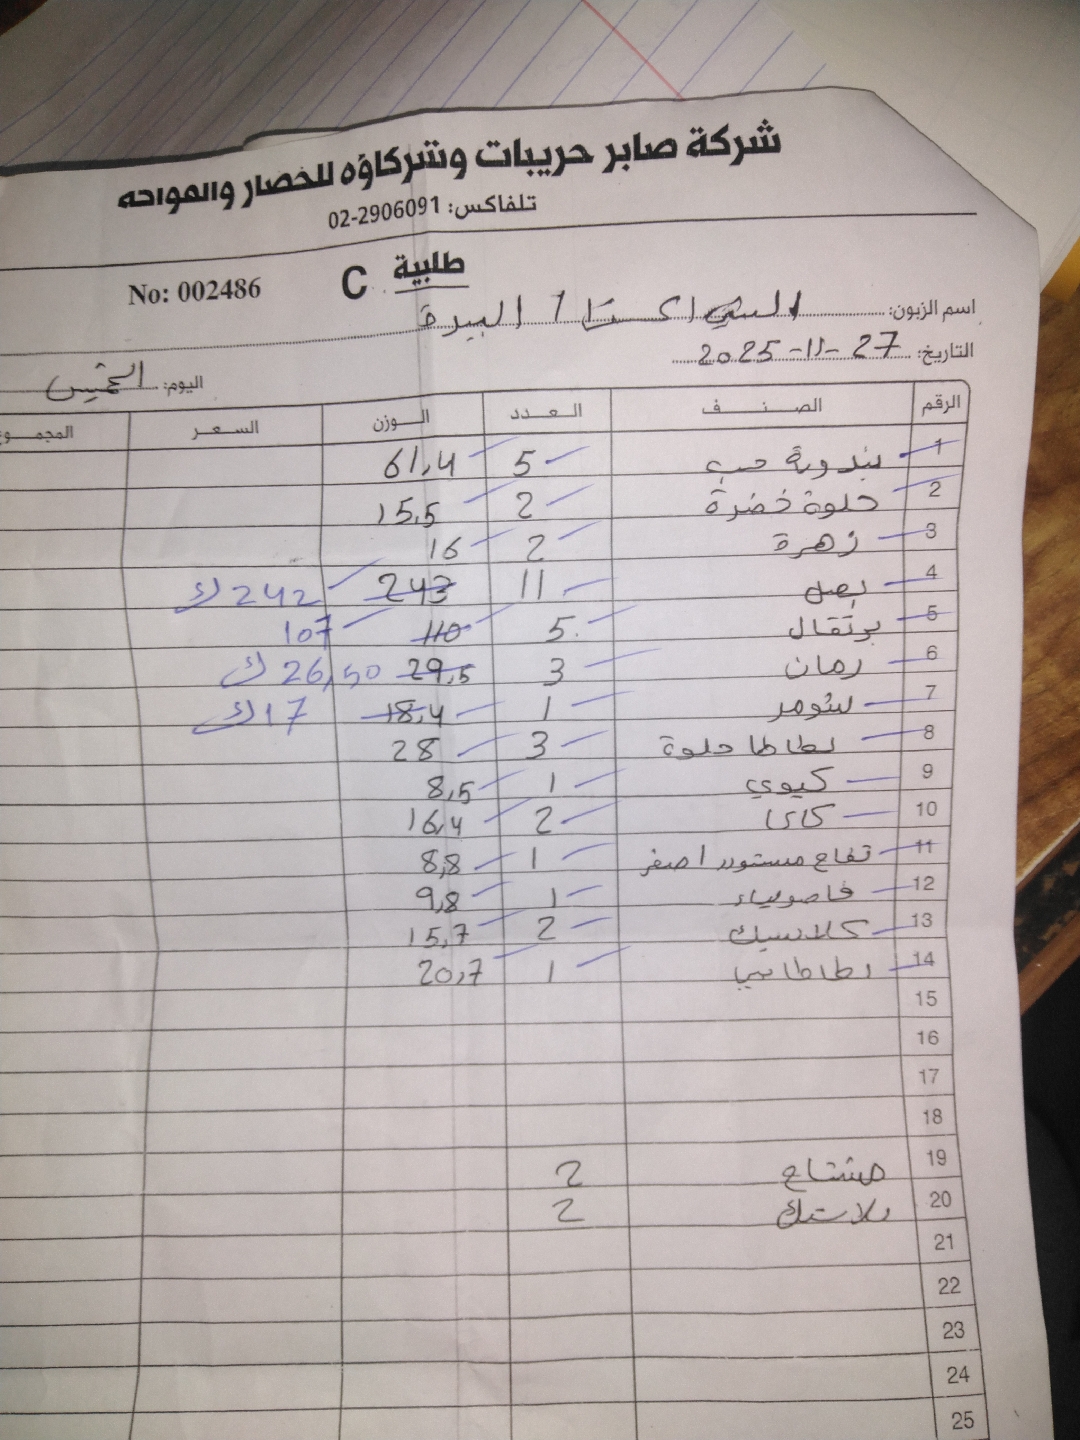 شركة صابر حريبات وشركاؤه للخضار والفواكه
تلفاكس: 02-2906091
طلبية C No: 002486
اسم الزبون: / البيرة
التاريخ: 27-11-2025
اليوم: الخميس
الرقم الصنف العدد الوزن السعر المجموع
1 بندورة حب 5 61,4
2 حلوة خضرة 2 15,5
3 زهرة 2 16
4 بصل 11 243 242 ك
5 برتقال 5 110 107
6 رمان 3 29,5 26,50 ك
7 شومر 1 18,4 17 ك
8 بطاطا حلوة 3 28
9 كيوي 1 8,5
10 كاكا 2 16,4
11 تفاح مستورد اصفر 1 8,8
12 فاصولياء 1 9,8
13 كلاسيك 2 15,7
14 بطاطا 1 20,7
15
16
17
18
19 مشتاح 2
20 بلاستك 2
21
22
23
24
25